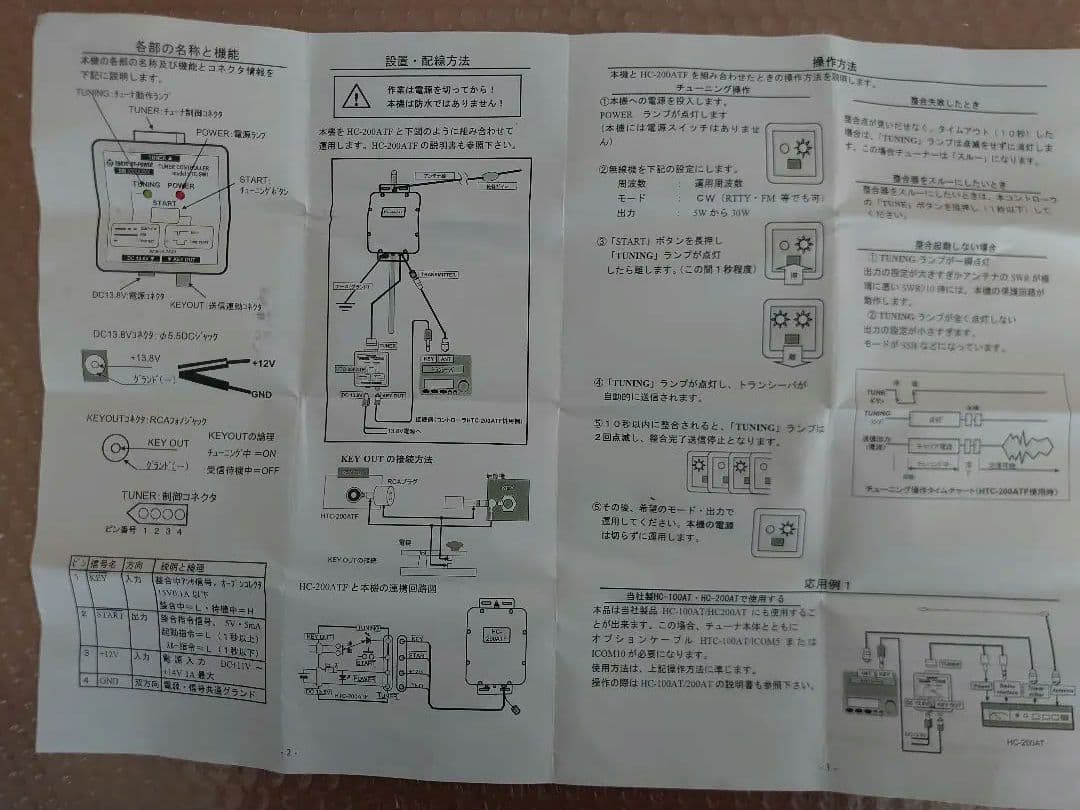 各部の名称と機能
本機の各部の名称及び機能とコネクタ情報を
下記に説明します。
TUNING:チューナ動作ランプ
TUNER:チューナ制御コネクタ
POWER:電源ランプ
TUNER▲
TUNER CONTROLLER
TUNING POWER
START:
チューニングボタン
START
DC 13.8V▼ ▼KEY OUT
DC13.8V:電源コネクタ
KEYOUT:送信連動コネクタ
DC13.8Vコネクタ:φ5.5DCジャック
+13.8V
グランド(ー)
+12V
GND
KEYOUTコネクタ:RCAフォノジャック
KEY OUT
グランド(ー)
KEYOUTの論理
チューニング中=ON
受信待機中=OFF
TUNER:制御コネクタ
ピン番号 1 2 3 4
ピン 信号名 方向 説明と論理
1 KEY 入力 整合中アンサ信号、オープンコレクタ
15V0.1A以下
整合中=L・待機中=H
2 START 出力 整合指令信号、5V・5mA
起動指令=L(1秒以上)
スルー指令=L(1秒以下)
3 +12V 入力 電源入力 DC+11V～
+14V 1A最大
4 GND 双方向 電源・信号共通グランド
設置・配線方法
作業は電源を切ってから!
本機は防水ではありません!
本機をHC-200ATFと下図のように組み合わせて
運用します。HC-200ATFの説明書も参照下さい。
アンテナ線
TRANSMITTER
TUNER
KEY ANT
トランシーバ
DC 13.8V KEY OUT
13.8V電源へ
KEY OUTの接続方法
RCAプラグ
KEY
HTC-200ATF
KEY OUTの接続
HC-200ATFと本機の連携回路図
KEY OUT
TUNING
START
POWER
DC 13.8V
HTC-200ATF
TUNER
KEY
START
HC-200ATF
- 2 -
操作方法
本機とHC-200ATFを組み合わせたときの操作方法を説明します。
チューニング操作
①本機への電源を投入します。
POWER ランプが点灯します
(本機には電源スイッチはありませ
ん)
②無線機を下記の設定にします。
周波数 : 運用周波数
モード : CW(RTTY・FM 等でも可)
出力 : 5Wから30W
③「START」ボタンを長押し
「TUNING」ランプが点灯
したら離します。(この間1秒程度)
押
離
④「TUNING」ランプが点灯し、トランシーバが
自動的に送信されます。
⑤10秒以内に整合されると、「TUNING」ランプは
2回点滅し、整合完了送信停止となります。
⑥その後、希望のモード・出力で
運用してください。本機の電源
は切らずに運用します。
当社製HC-100AT・HC-200ATで使用する
本品は当社製品 HC-100AT/HC200AT にも使用するこ
とが出来ます。この場合、チューナ本体とともに
オプションケーブル HTC-100AT/ICOM5 または
ICOM10 が必要になります。
使用方法は、上記操作方法に準じます。
操作の際は HC-100AT/200AT の説明書も参照下さい。
整合失敗したとき
整合点が見いだせなく、タイムアウト(10秒)した
場合は、「TUNING」ランプは点滅をせずに消灯しま
す。この場合チューナーは「スルー」になります。
整合器をスルーにしたいとき
整合器をスルーにしたいときは、本コントローラ
の「TUNE」ボタンを短押し(1秒以下)して
ください。
整合起動しない場合
①TUNINGランプが一瞬点灯
出力の設定が大きすぎかアンテナのSWRが極
端に悪いSWR/10時には、本機の保護回路が
動作します。
②TUNINGランプが全く点灯しない
出力の設定が小さすぎます。
モードがSSBなどになっています。
TUNE
TUNING
点灯
送信出力
(電波)
キャリア電波
チューニング中
チューニング操作タイムチャート(HTC-200ATF使用時)
応用例1
TUNER
HC-200AT
- 3 -